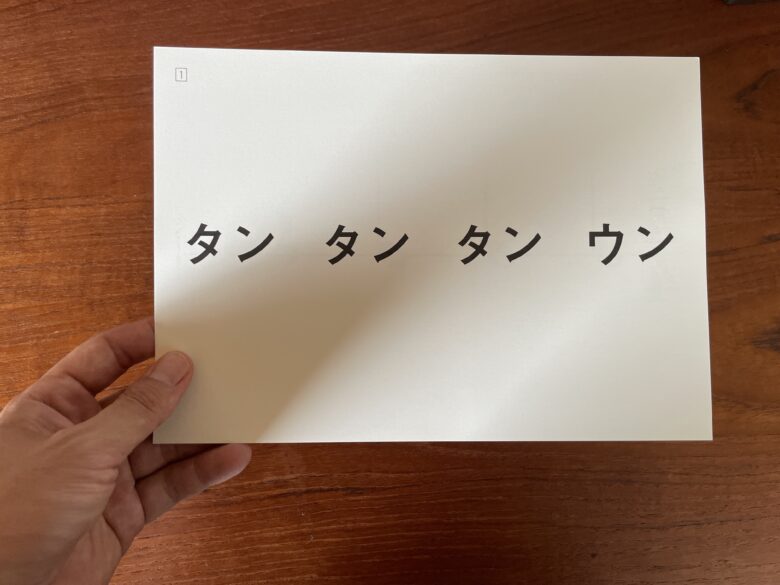 1
タン タン タン ウン